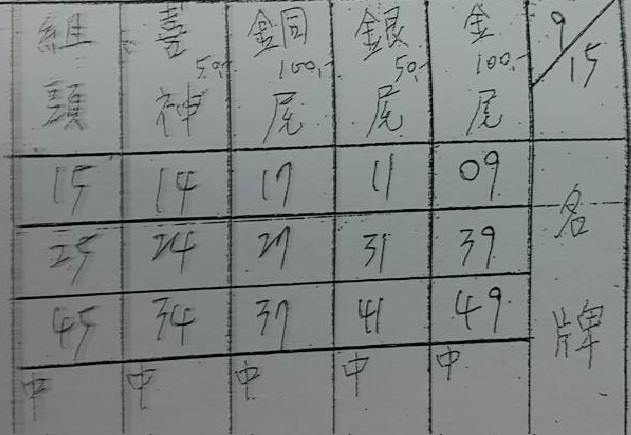 組頭 喜神50.- 銅尾100.- 銀尾50.- 金尾100.- 9/15
15 14 17 11 09 名牌
25 24 27 31 39
45 34 37 41 49
中 中 中 中 中